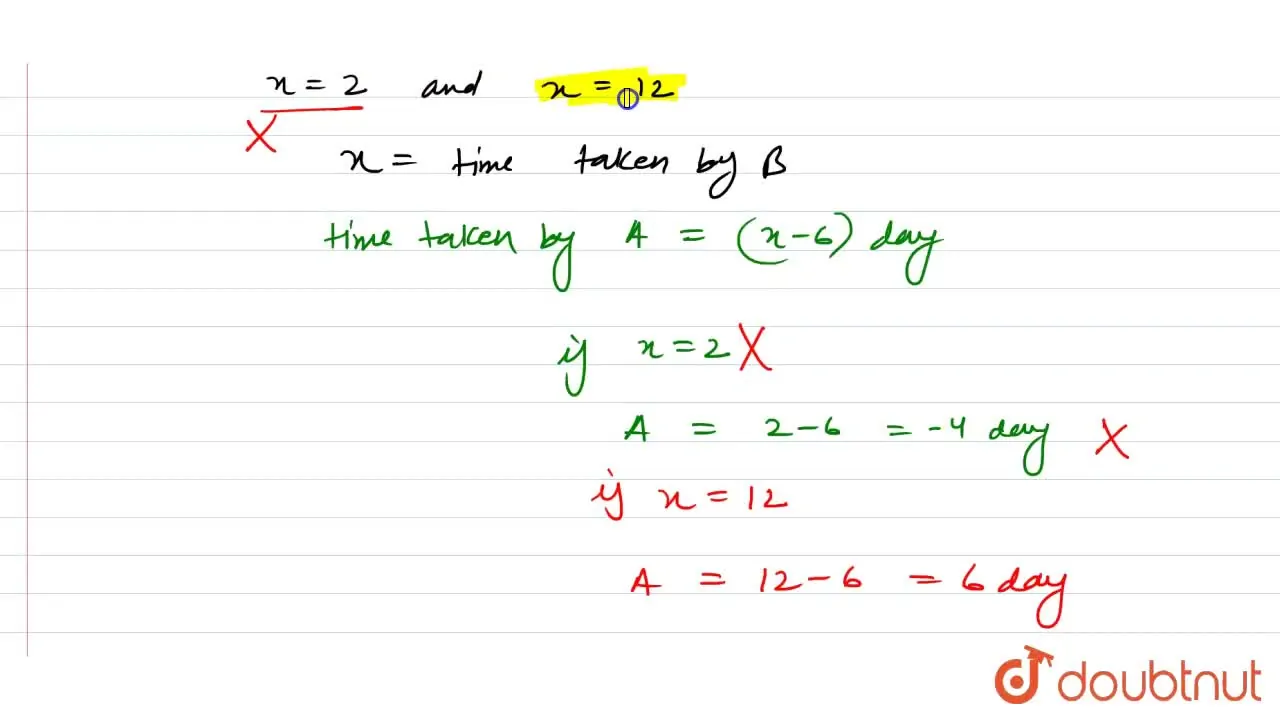 x = 2 and x = 12
x = time taken by B
time taken by A = (x-6) day
if x = 2 X
A = 2-6 = -4 day X
if x = 12
A = 12-6 = 6 day
doubtnut